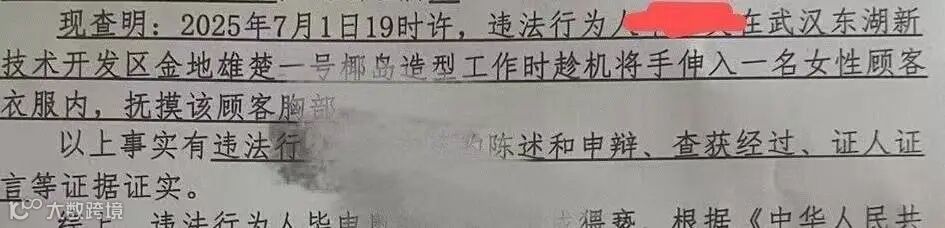 现查明：2025年7月1日19时许，违法行为人 在武汉东湖新
技术开发区金地雄楚一号椰岛造型工作时趁机将手伸入一名女性顾客
衣服内，抚摸该顾客胸部
以上事实有违法行 的陈述和申辩、查获经过、证人证
言等证据证实。
综上，违法行为人 猥亵，根据《中华人民共
大数跨境